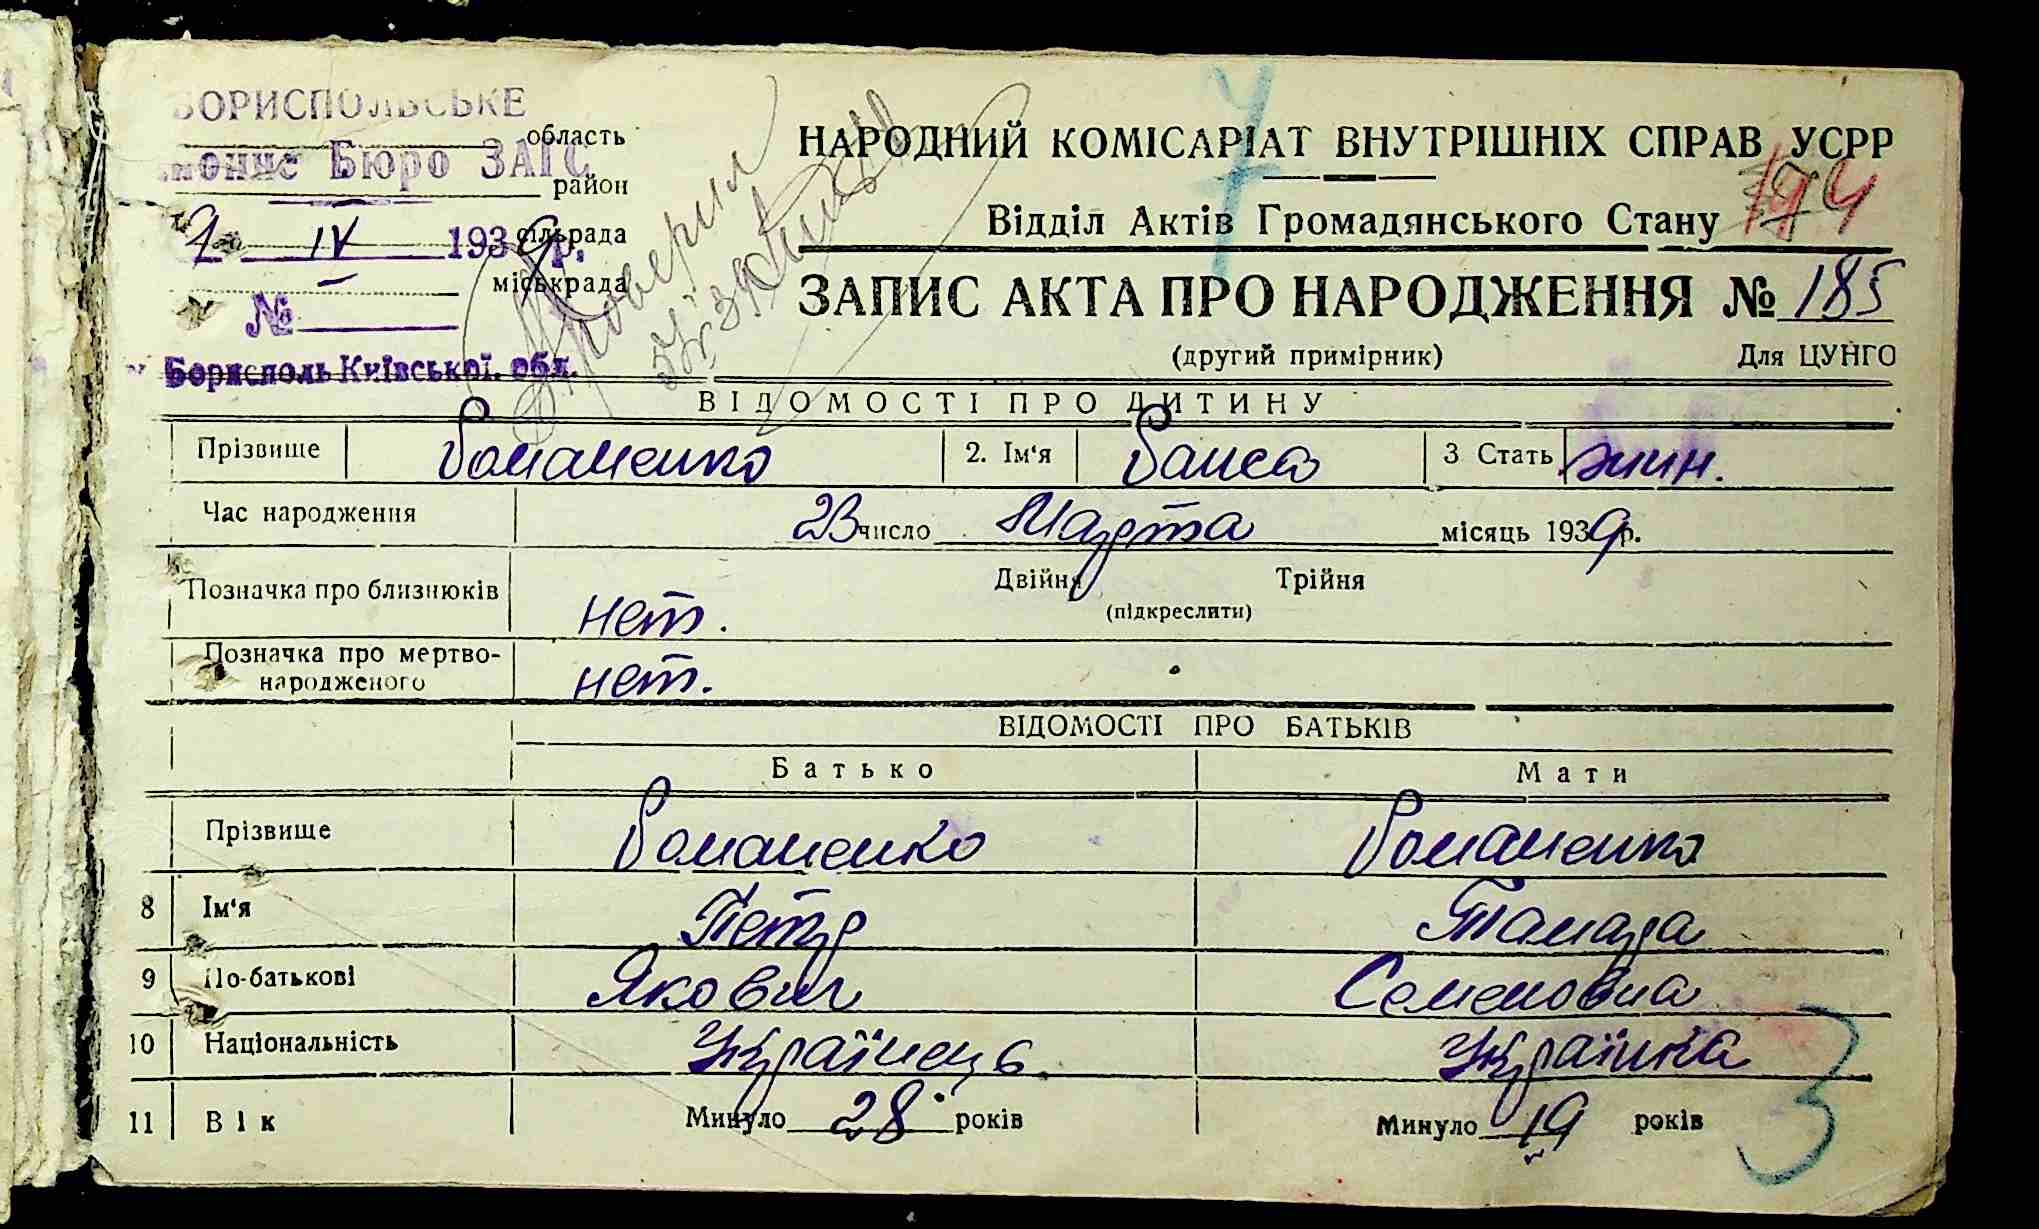 БОРИСПОЛЬСЬКЕ
область
Бюро ЗАГС
район
НАРОДНИЙ КОМІСАРІАТ ВНУТРІШНІХ СПРАВ УСРР
Відділ Актів Громадянського Стану
IV 1939р.
сільрада
міськрада
№
ЗАПИС АКТА ПРО НАРОДЖЕННЯ № 185
(другий примірник) Для ЦУНГО
Бориспіль Київської. обл.
ВІДОМОСТІ ПРО ДИТИНУ
Прізвище Романенко 2. Ім'я Раиса 3 Стать жин.
Час народження 23 число Марта місяць 1939р.
Позначка про близнюків нет. Двійня Трійня
(підкреслити)
Позначка про мертво-
народженого нет.
ВІДОМОСТІ ПРО БАТЬКІВ
Батько Мати
Прізвище Романенко Романенко
8 Ім'я Петр Тамара
9 По-батькові Якович Семеновна
10 Національність Українець Українка
11 Вік Минуло 28 років Минуло 19 років
3